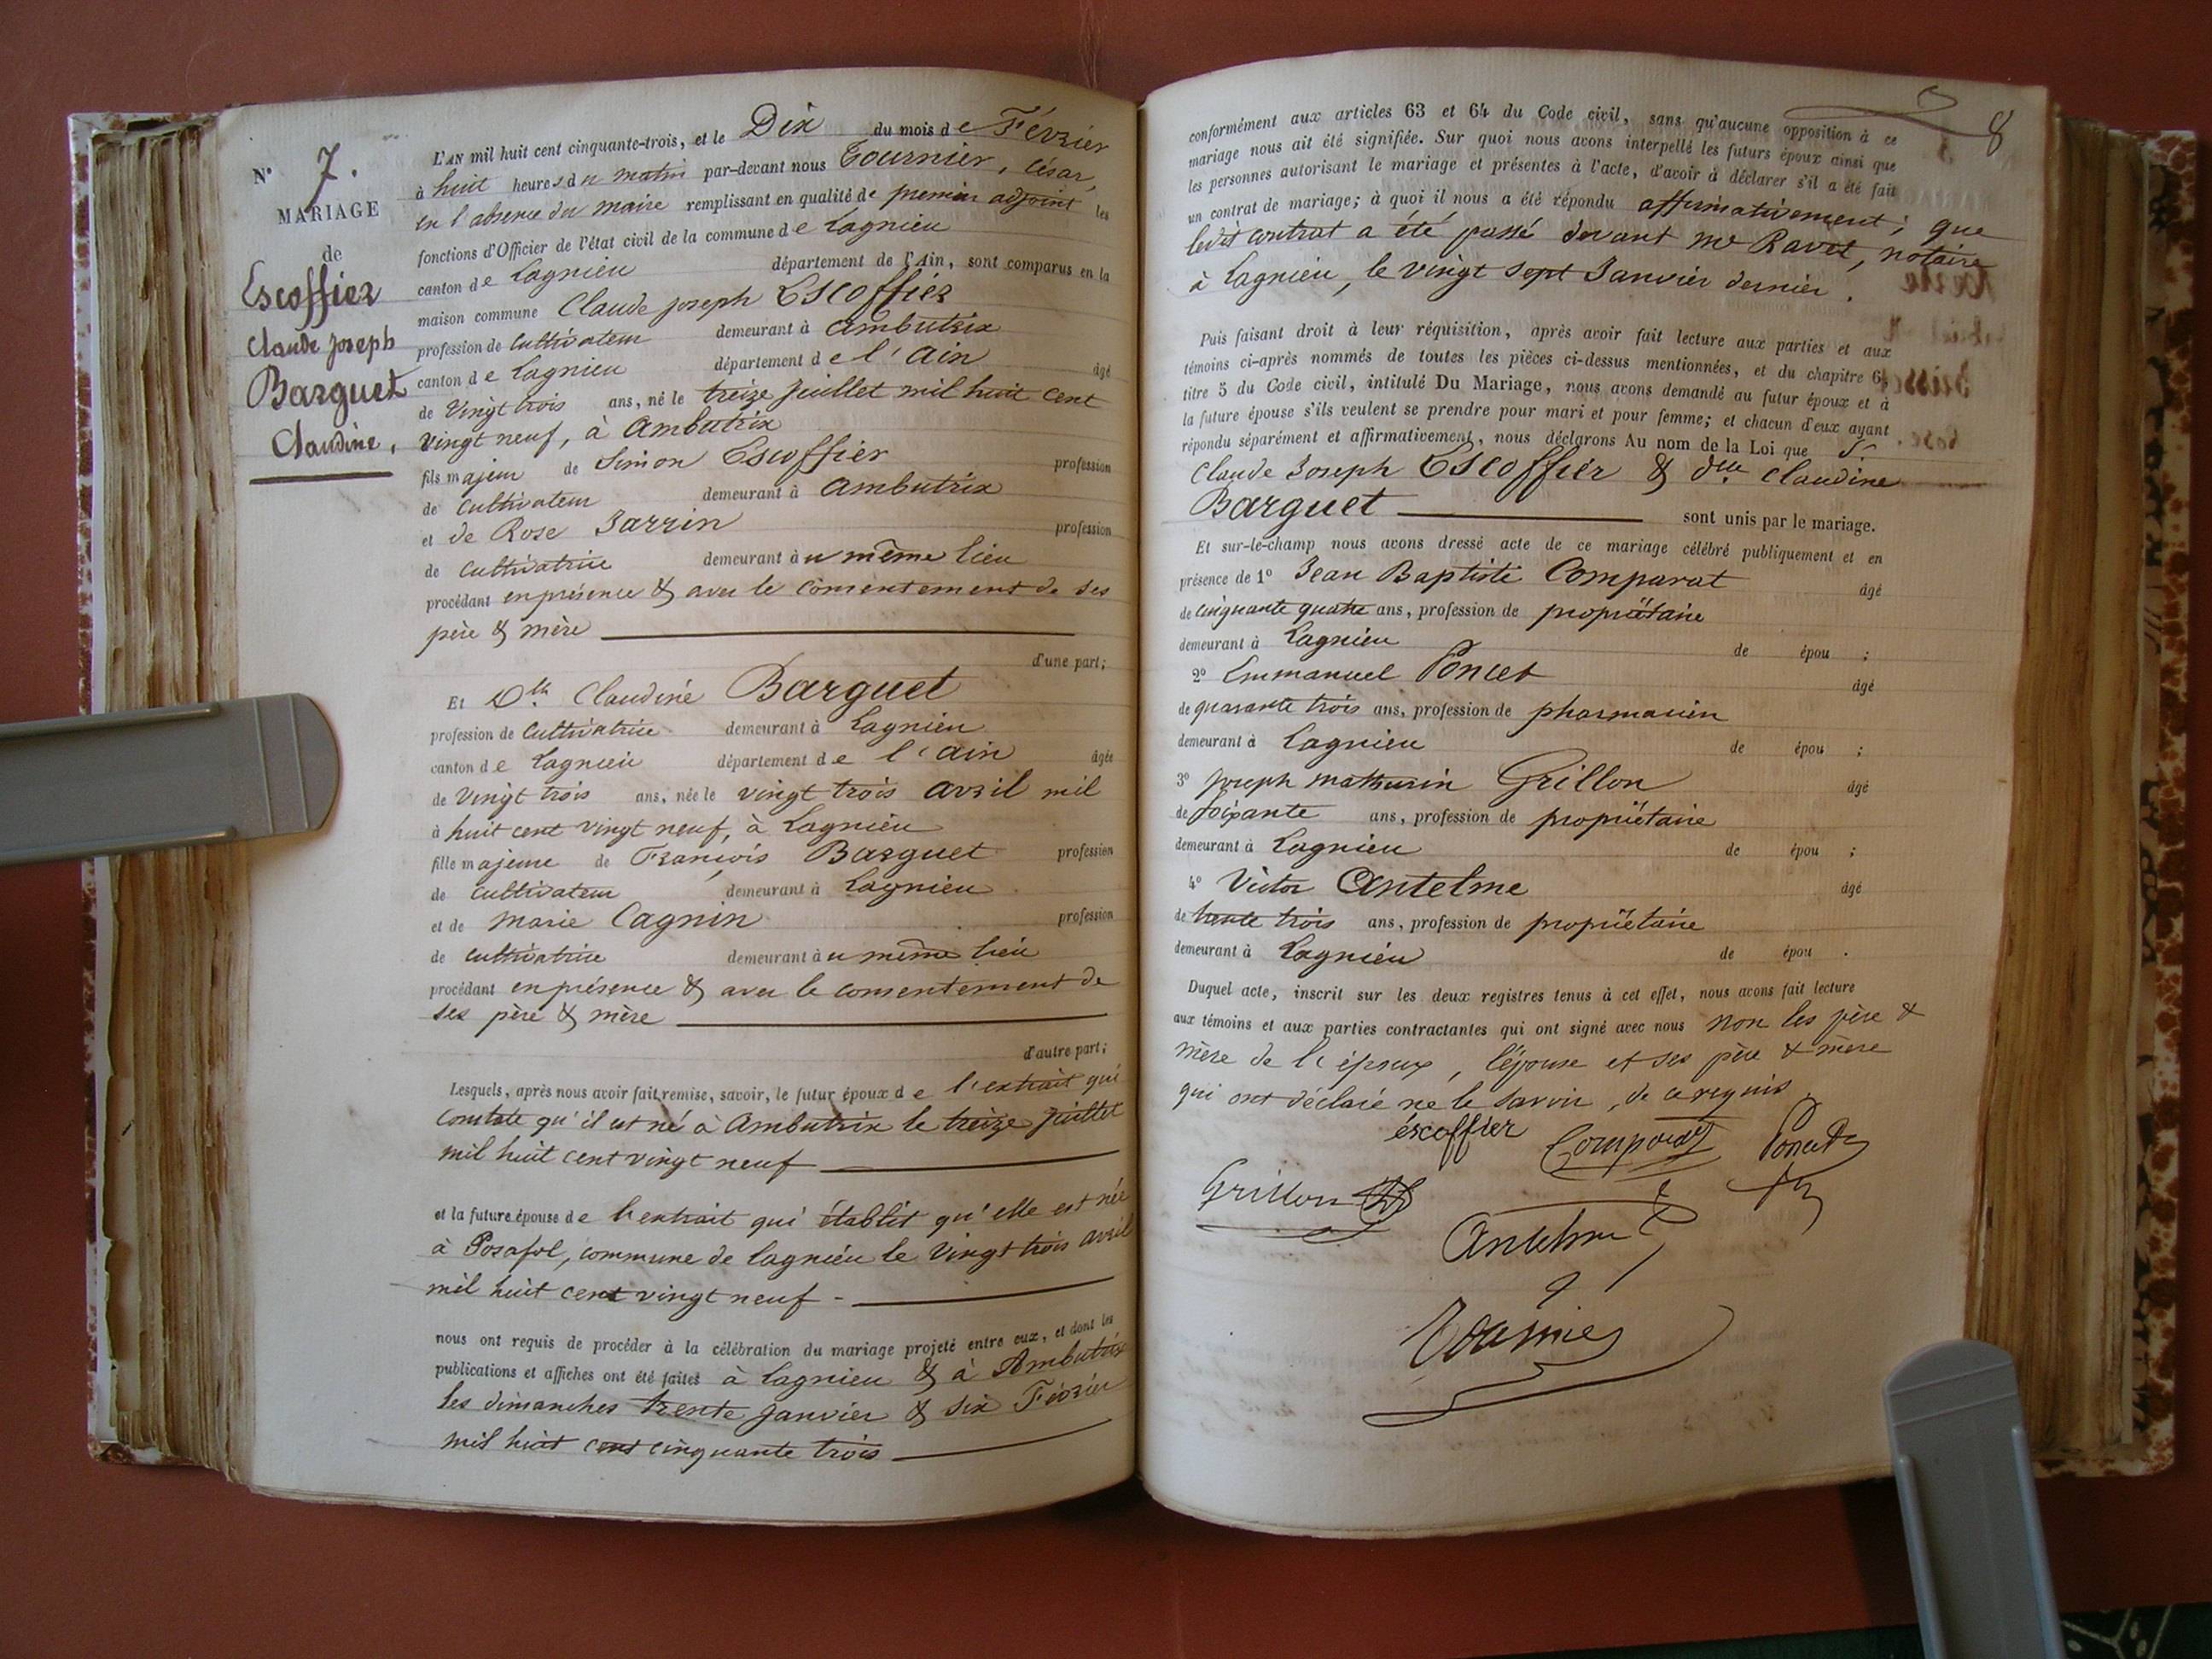 N° 7.
MARIAGE
de
Escoffier
Claude Joseph
Barguet
Claudine,
L'AN mil huit cent cinquante-trois, et le Dix du mois de Février
à huit heures du matin par-devant nous Tournier, César,
en l'absence du maire remplissant en qualité de premier adjoint les
fonctions d'Officier de l'état civil de la commune de Lagnieu
canton de Lagnieu département de l'Ain, sont comparus en la
maison commune Claude Joseph Escoffier
profession de cultivateur demeurant à Ambutrix
canton de Lagnieu département de l'Ain âgé
de Vingt trois ans, né le treize Juillet mil huit cent
vingt neuf, à Ambutrix
fils majeur de Simon Escoffier profession
de cultivateur demeurant à Ambutrix
et de Rose Jarrin profession
de cultivatrice demeurant au même lieu
procédant en présence & avec le consentement de ses
père & mère
d'une part;
Et Dlle Claudine Barguet
profession de Cultivatrice demeurant à Lagnieu
canton de Lagnieu département de l'Ain âgée
de Vingt trois ans, née le vingt trois avril mil
à huit cent vingt neuf, à Lagnieu
fille majeure de François Barguet profession
de cultivateur demeurant à Lagnieu
et de Marie Cagnin profession
de cultivatrice demeurant au même lieu
procédant en présence & avec le consentement de
ses père & mère
d'autre part;
Lesquels, après nous avoir fait remise, savoir, le futur époux de l'extrait qui
constate qu'il est né à Ambutrix le treize Juillet
mil huit cent vingt neuf
et la future épouse de l'extrait qui établit qu'elle est née
à Posafol, commune de Lagnieu le Vingt trois avril
mil huit cent vingt neuf -
nous ont requis de procéder à la célébration du mariage projeté entre eux, et dont les
publications et affiches ont été faites à Lagnieu & à Ambutrix
les dimanches trente Janvier & six Février
mil huit cent cinquante trois
8
conformément aux articles 63 et 64 du Code civil, sans qu'aucune opposition à ce
mariage nous ait été signifiée. Sur quoi nous avons interpellé les futurs époux ainsi que
les personnes autorisant le mariage et présentes à l'acte, d'avoir à déclarer s'il a été fait
un contrat de mariage; à quoi il nous a été répondu affirmativement; que
ledit contrat a été passé devant me Ravet, notaire
à Lagnieu, le vingt sept Janvier dernier.
Puis faisant droit à leur réquisition, après avoir fait lecture aux parties et aux
témoins ci-après nommés de toutes les pièces ci-dessus mentionnées, et du chapitre 6,
titre 5 du Code civil, intitulé Du Mariage, nous avons demandé au futur époux et à
la future épouse s'ils veulent se prendre pour mari et pour femme; et chacun d'eux ayant
répondu séparément et affirmativement, nous déclarons Au nom de la Loi que S.
Claude Joseph Escoffier & dlle Claudine
Barguet sont unis par le mariage.
Et sur-le-champ nous avons dressé acte de ce mariage célébré publiquement et en
présence de 1° Jean Baptiste Comparat âgé
de cinquante quatre ans, profession de propriétaire
demeurant à Lagnieu de épou ;
2° Emmanuel Poncet âgé
de quarante trois ans, profession de pharmacien
demeurant à Lagnieu de épou ;
3° Joseph Mathurin Grillon âgé
de soixante ans, profession de propriétaire
demeurant à Lagnieu de épou ;
4° Victor Antelme âgé
de trente trois ans, profession de propriétaire
demeurant à Lagnieu de épou .
Duquel acte, inscrit sur les deux registres tenus à cet effet, nous avons fait lecture
aux témoins et aux parties contractantes qui ont signé avec nous Non les père &
mère de l'époux, l'épouse et ses père & mère
qui ont déclaré ne le savoir, de ce requis.
éscoffier Comparat Poncet
Grillon
Antelme
Tournier